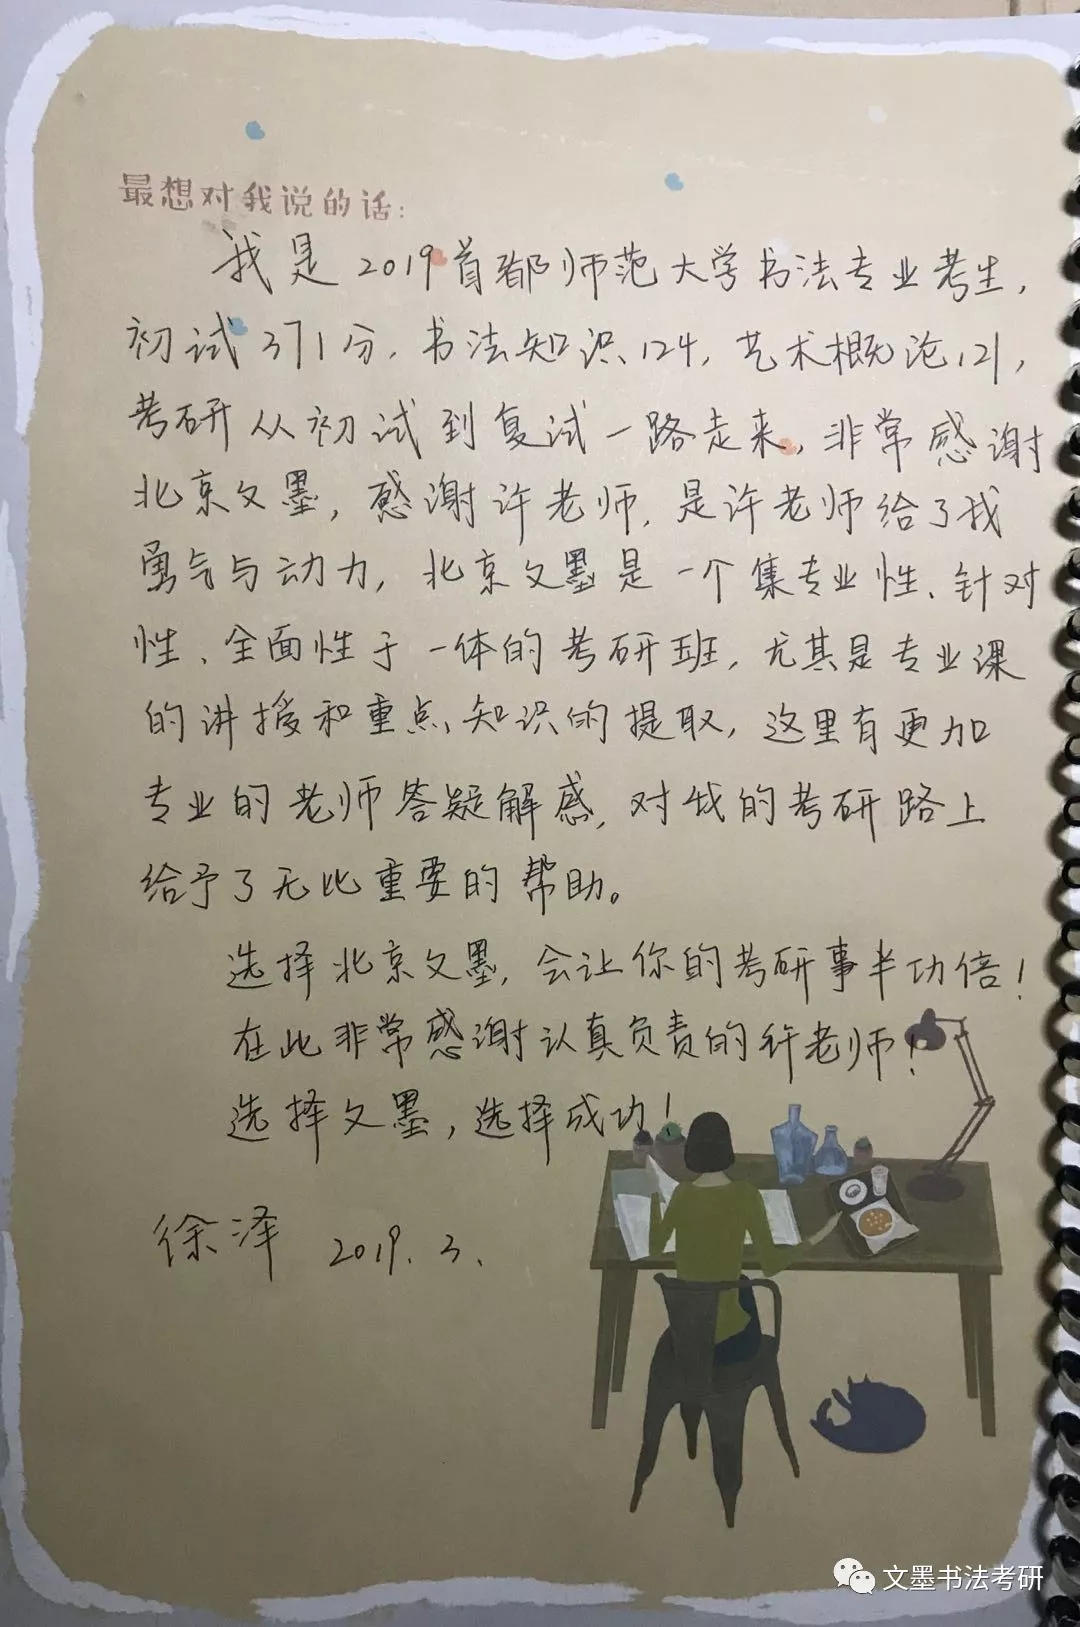 最想对我说的话:
我是2019首都师范大学书法专业考生,
初试371分,书法知识124,艺术概论121,
考研从初试到复试一路走来,非常感谢
北京文墨,感谢许老师,是许老师给了我
勇气与动力,北京文墨是一个集专业性、针对
性、全面性于一体的考研班,尤其是专业课
的讲授和重点知识的提取,这里有更加
专业的老师答疑解惑,对我的考研路上
给予了无比重要的帮助。
选择北京文墨,会让你的考研事半功倍!
在此非常感谢认真负责的许老师!
选择文墨,选择成功!
徐泽 2019.3.
文墨书法考研